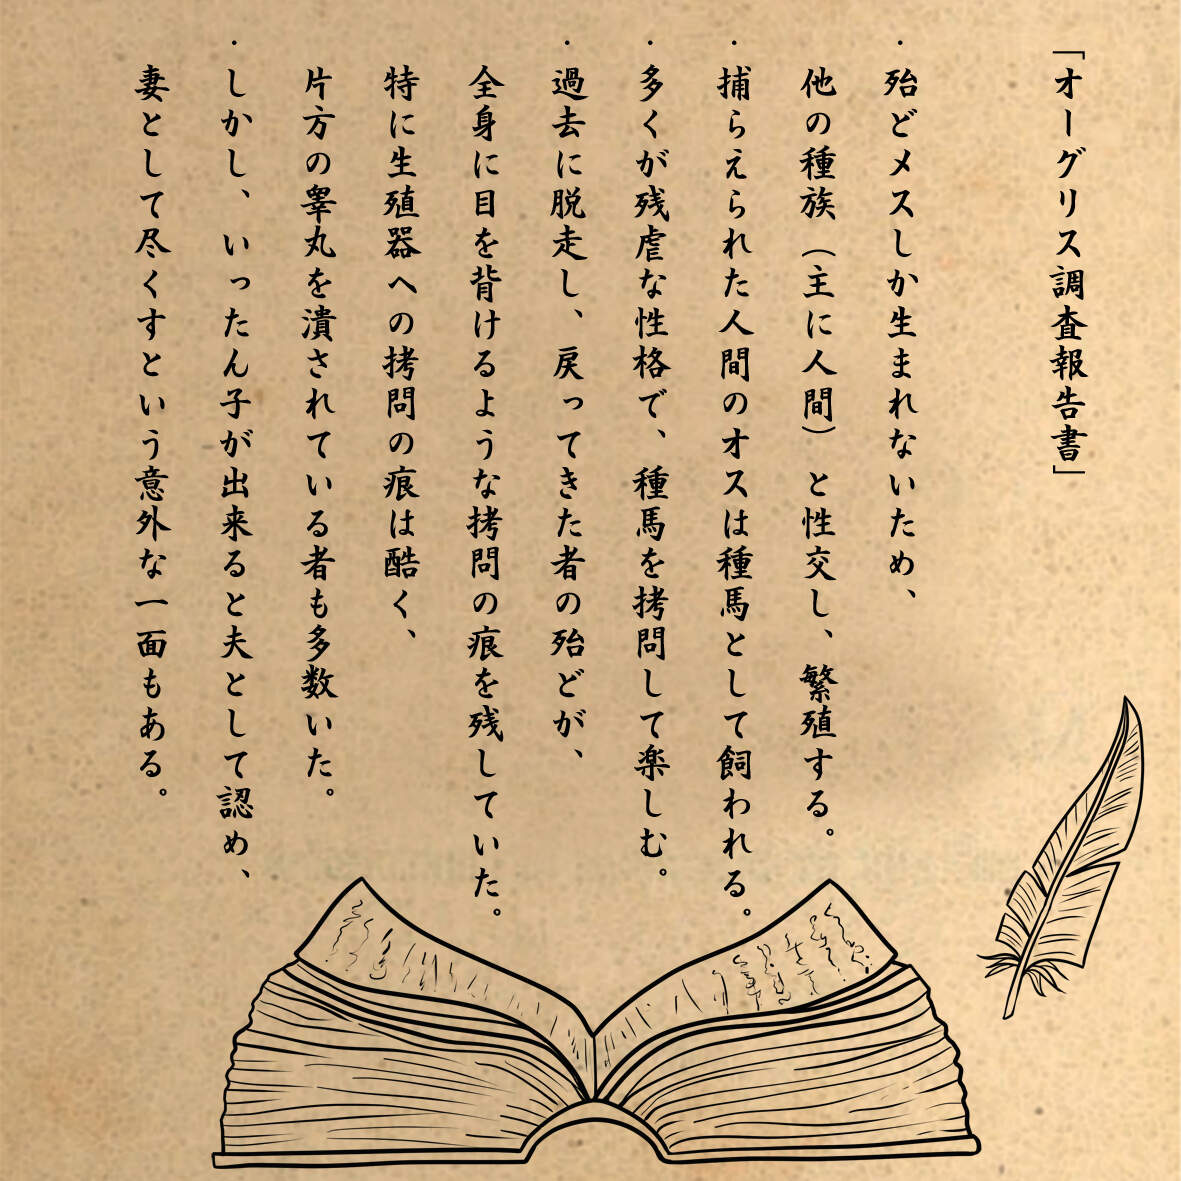 「オーグリス調査報告書」
・殆どメスしか生まれないため、
他の種族（主に人間）と性交し、繁殖する。
・捕らえられた人間のオスは種馬として飼われる。
・多くが残虐な性格で、種馬を拷問して楽しむ。
・過去に脱走し、戻ってきた者の殆どが、
全身に目を背けるような拷問の痕を残していた。
特に生殖器への拷問の痕は酷く、
片方の睾丸を潰されている者も多数いた。
・しかし、いったん子が出来ると夫として認め、
妻として尽くすという意外な一面もある。